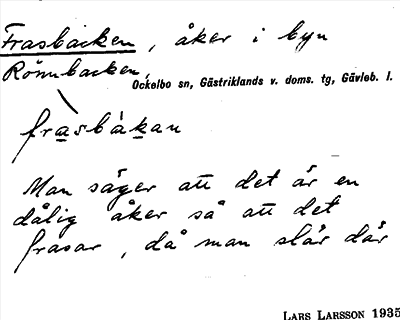 Frasbacken, åker i byn
Rönnbacken,
Ockelbo sn, Gästriklands v. doms. tg, Gävleb. l.
fra̲sbàk̲an
Man säger att det är en
dålig åker så att det
frasar, då man slår där
LARS LARSSON 1935